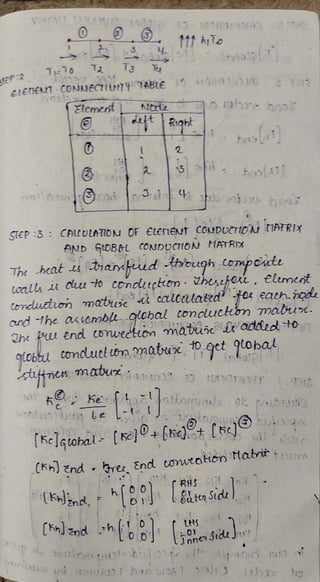 ① ② ③
1 2 3 4 ↑↑↑ h,T∞
T1=T0 T2 T3 T4
STEP:2
ELEMENT CONNECTIVITY TABLE
Element Node
ⓔ Left Right
① 1 2
② 2 3
③ 3 4
STEP:3 : CALCULATION OF ELEMENT CONDUCTION MATRIX
AND GLOBAL CONDUCTION MATRIX
The heat is transfered through composite
walls is due to conduction. Therefore, Element
conduction matrix is calculated for each node
and the assemble global conduction matrix.
The free end convection matrix is added to
global conduction matrix to get global
stiffness matrix.
Kc^ⓔ = Ke/Le [1 -1
-1 1]
[Kc]global = [Kc]^① + [Kc]^② + [Kc]^③
[Kh]End = Free End convection Matrix
[Kh]End = h[0 0
0 1] [RHS
or
outer side]
[Kh]End = h[1 0
0 0] [LHS
or
Inner side]